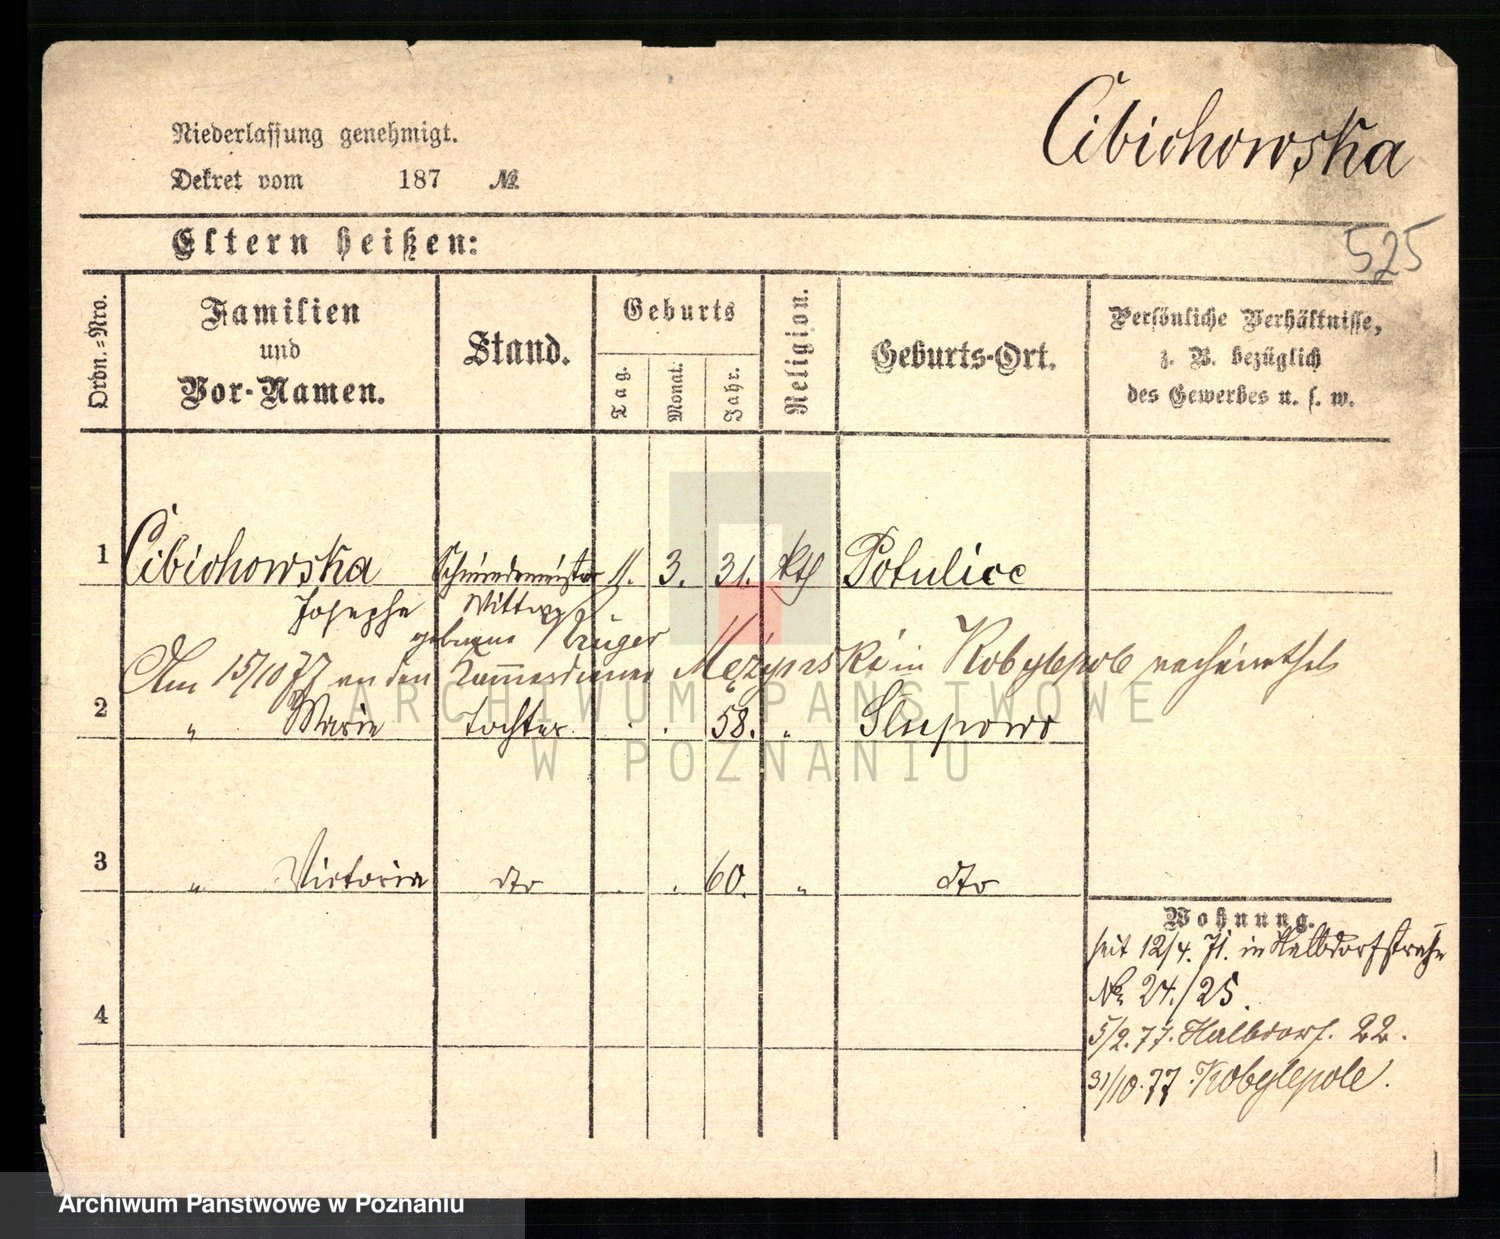 Cibichowska
Niederlassung genehmigt.
Dekret vom 187 №
525
Eltern heißen:
Ordn.=Nro.
Familien und Vor-Namen.
Stand.
Geburts
Tag.
Monat.
Jahr.
Religion.
Geburts-Ort.
Persönliche Verhältnisse,
z. B. bezüglich
des Gewerbes u. s. w.
1 Cibichowska Schmiedemeister 11. 3. 31. kth Potulice
Josepha Wittwe
geborene Krüger
Am 15/10 77 an den Kammerdiener in Kobylepole verheirathet
2 " Marie Tochter . . 58. " Slupowo
3 " Victoria dto . . 60. " dto
4
Wohnung.
seit 12/4. 71. in Halbdorfstraße
No 24./25.
5/2. 77. Halbdorf. 22.
31/10. 77 Kobylepole.
ARCHIWUM PAŃSTWOWE
W POZNANIU
Archiwum Państwowe w Poznaniu